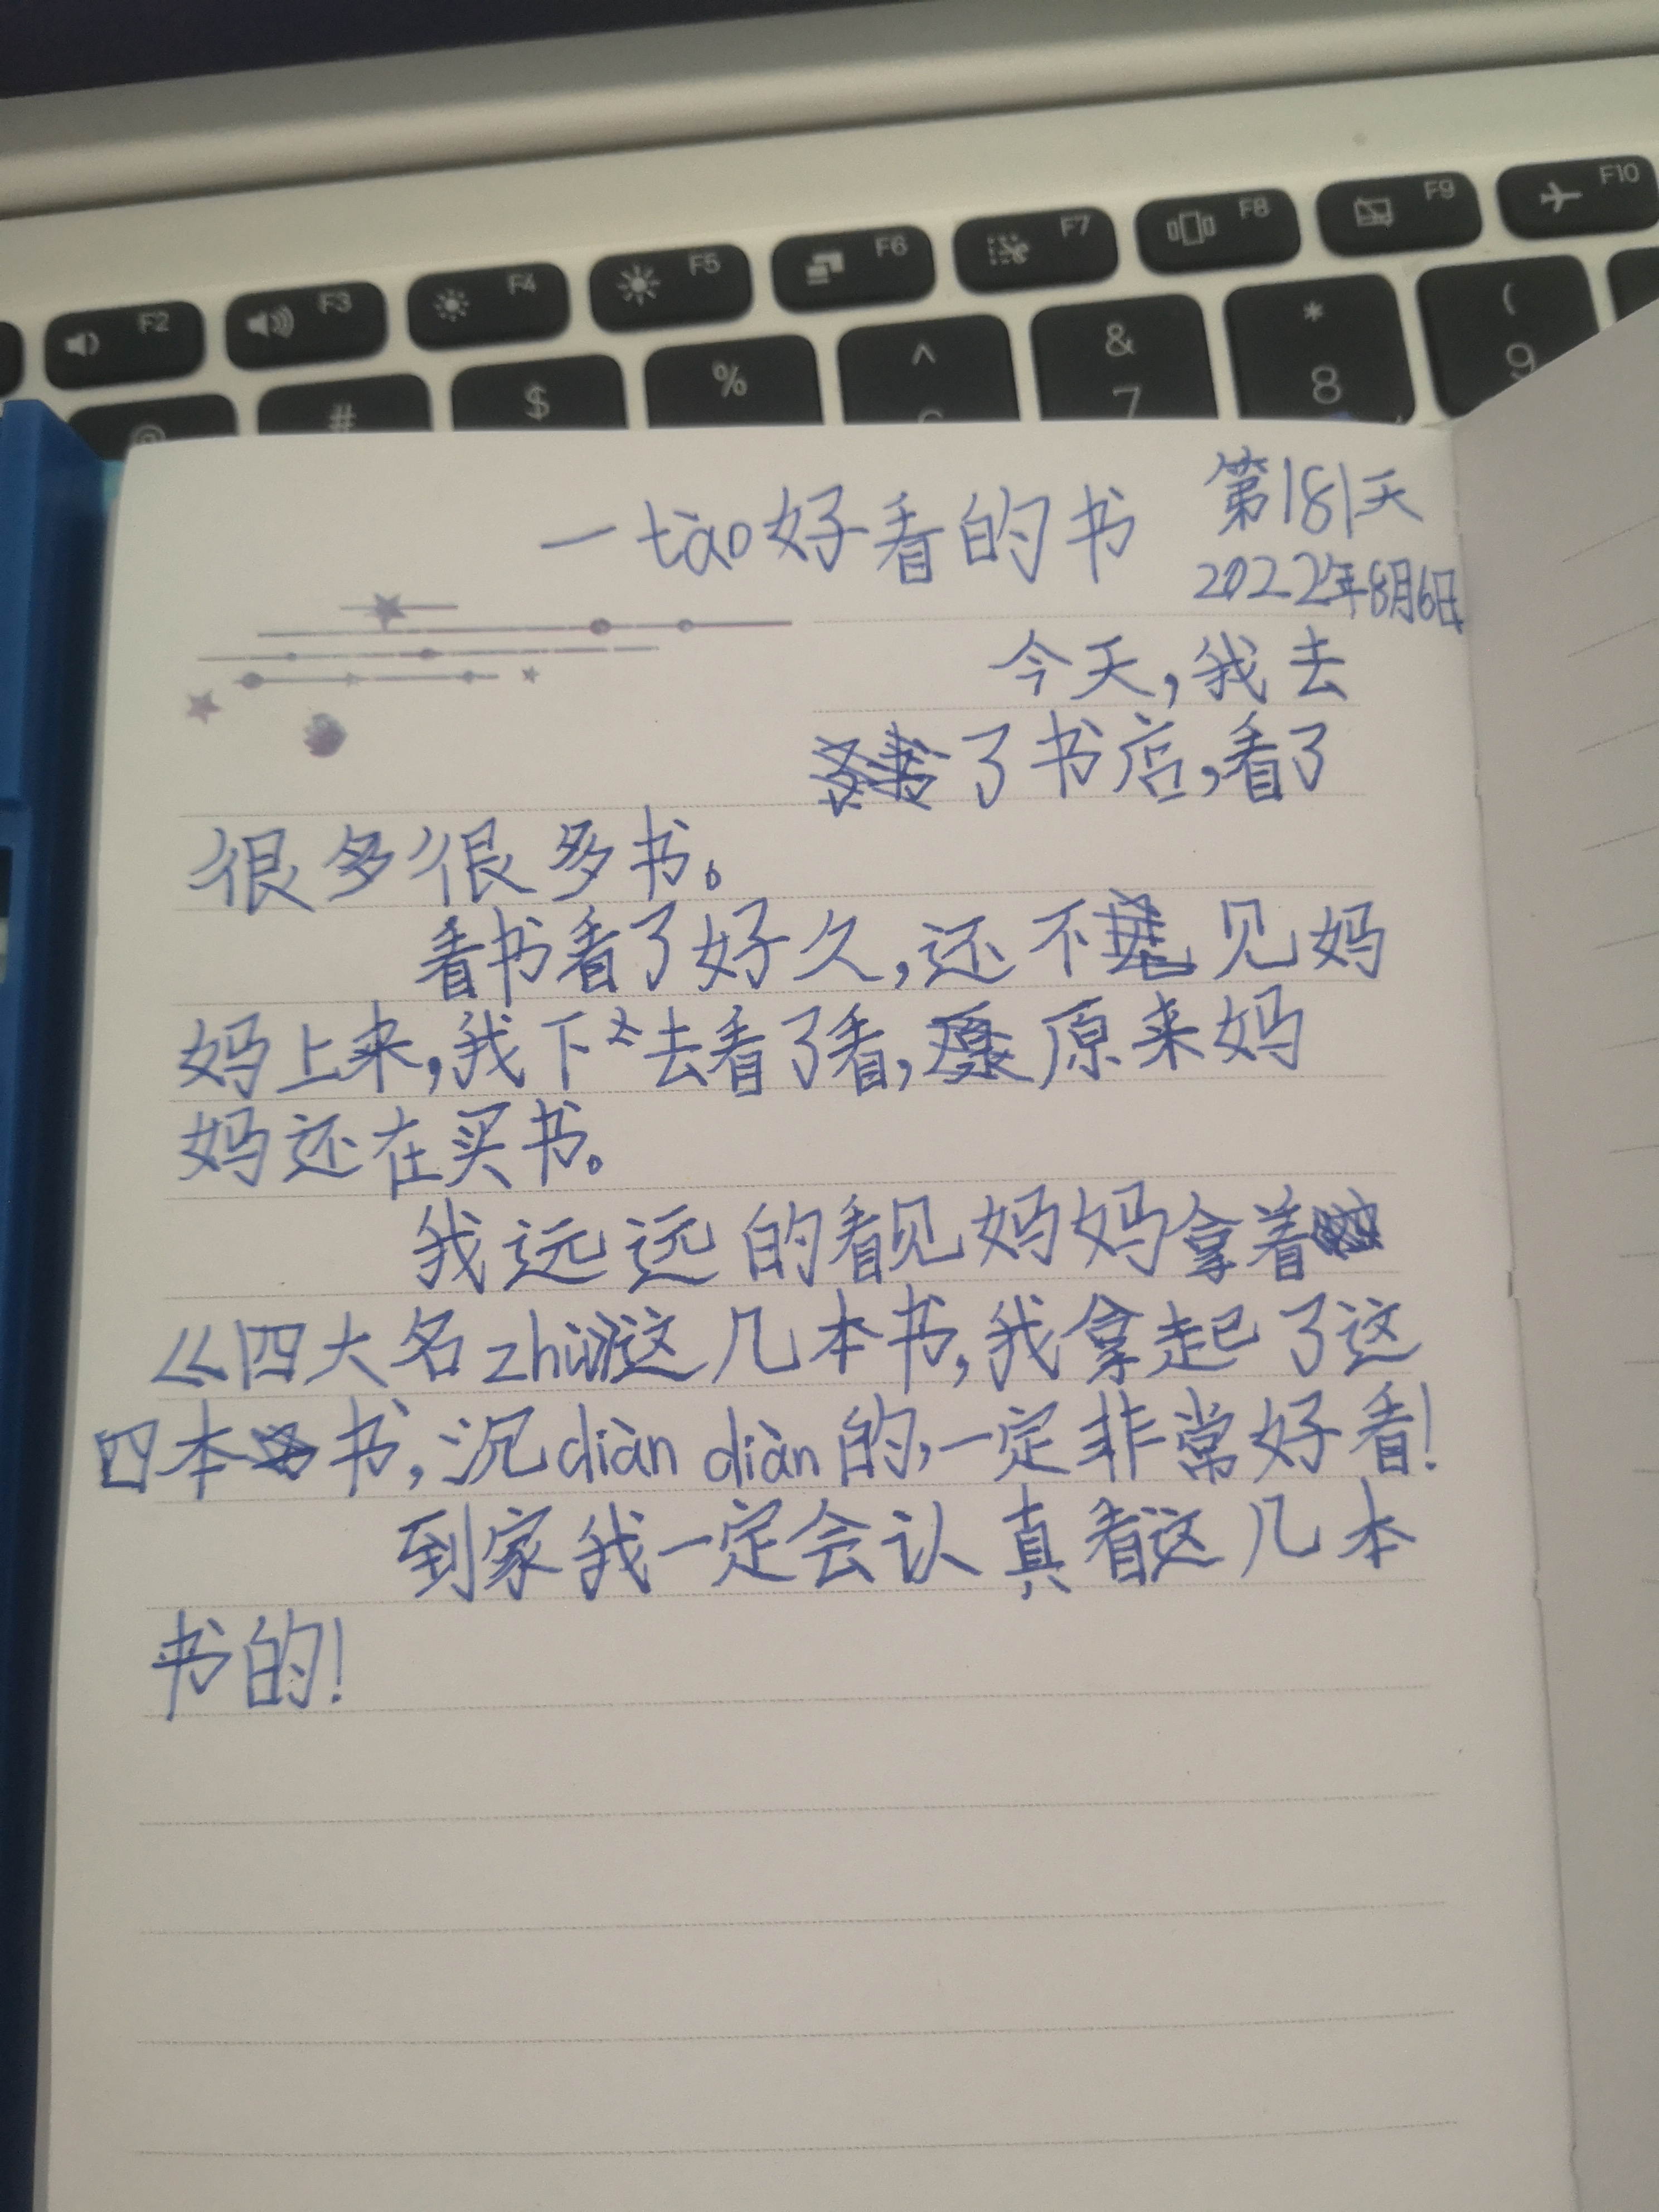 F2 F3 F4 F5 F6 F7 F8 F9 F10
@ # $ % ^ & 7 * 8 ( 9
一tào好看的书 第181天
2022年8月6日
今天,我去
了书店,看了
很多很多书。
看书看了好久,还不见妈
妈上来,我下去看了看,原来妈
妈还在买书。
我远远的看见妈妈拿着
《四大名zhù》这几本书,我拿起了这
四本书,沉diàn diàn的,一定非常好看!
到家我一定会认真看这几本
书的!